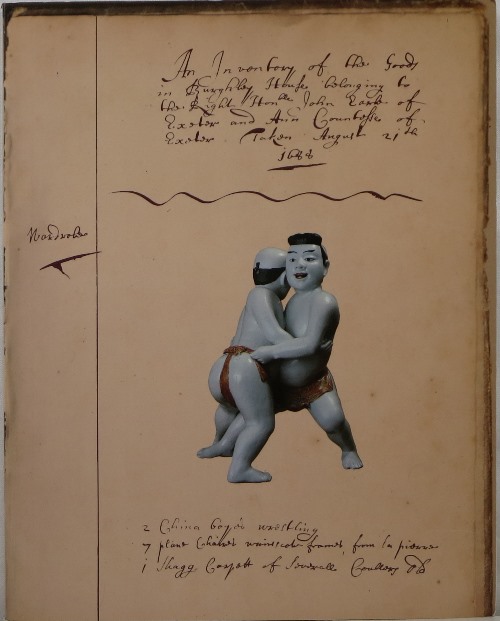 An Inventory of the Goods
in Burghley House belonging to
the Right Honble John Earle of
Exeter and Ann Countesse of
Exeter Taken August 21th
1688
Wardrobe
2 China boyes wrestling
7 plane Chaires wainscote frames, from
1 Shagg Carpett of Severalle Coullers